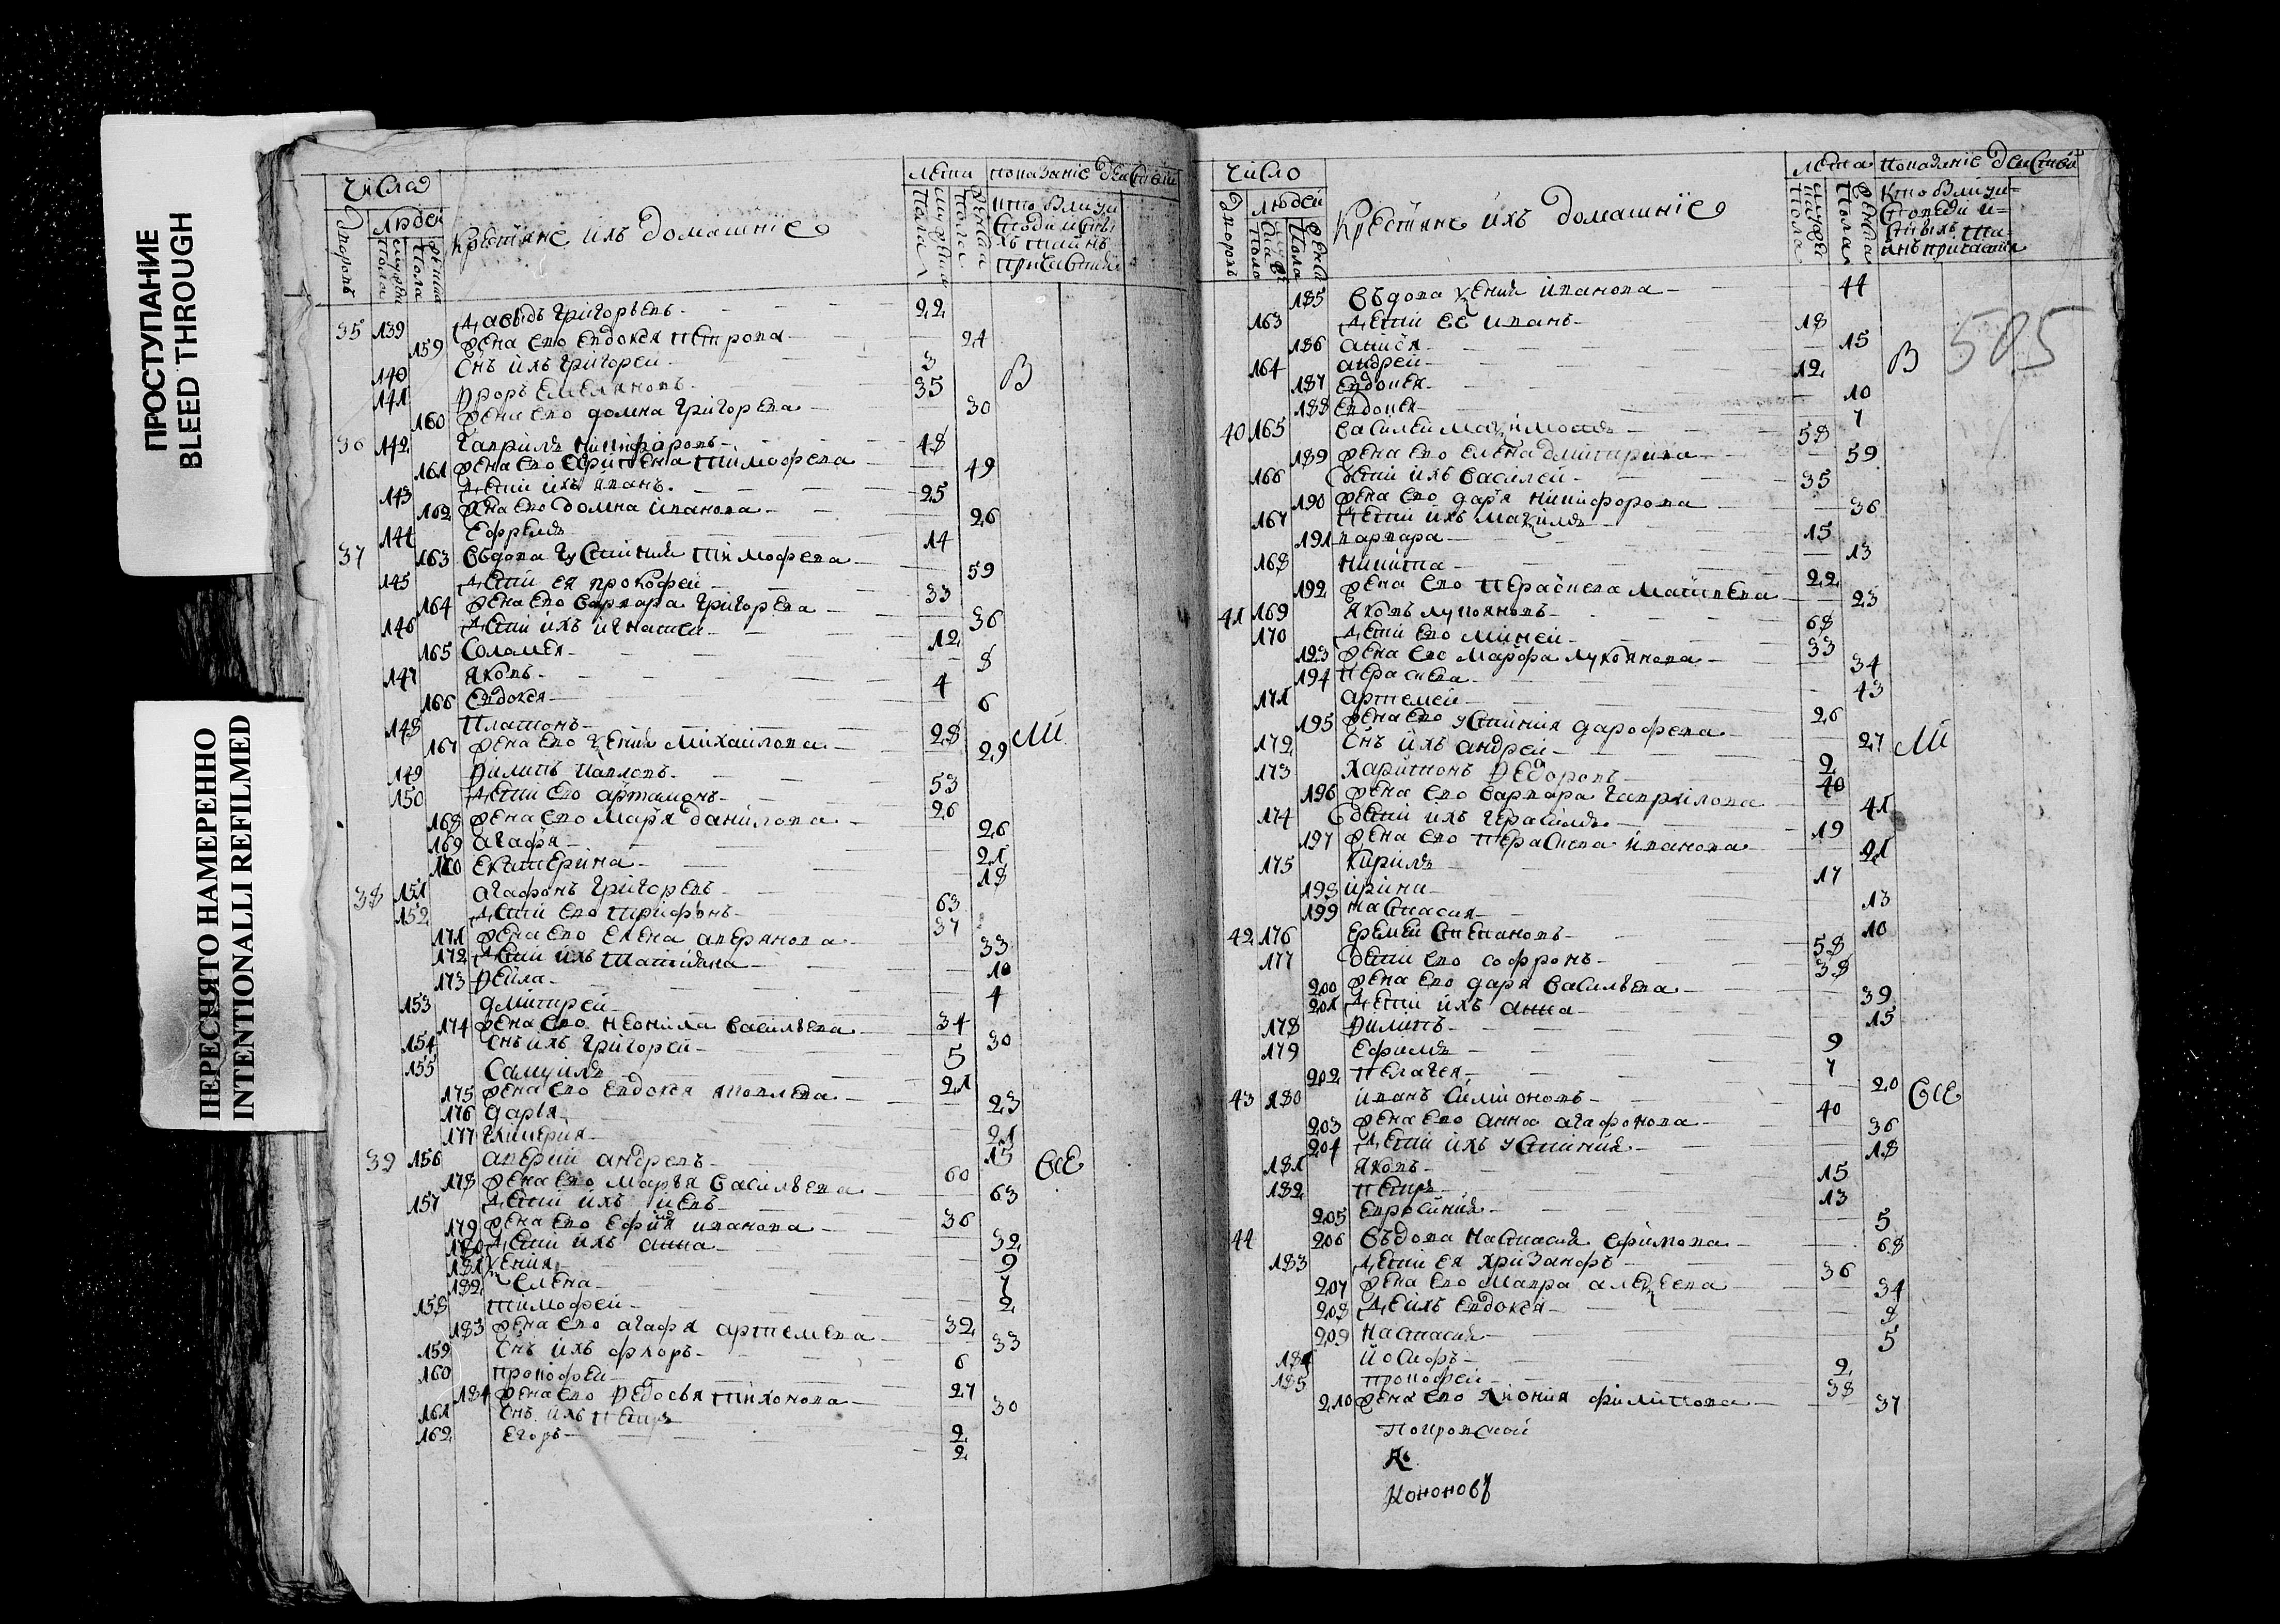 ПРОСТУПАНИЕ
BLEED THROUGH
ПЕРЕСНЯТО НАМЕРЕННО
INTENTIONALLI REFILMED
Числа
Людей
Крестяне ихъ домашние
Лета
показание действий
35 139 Давыдъ Григорьевъ 22
159 Жена ево Евдокея Петрова 24
140 Снъ ихъ Григорей 3
141 Фроръ Емеляновъ 35
160 Жена ево Домна Григорева 30
36 142 Гаврилъ Никифоровъ 48
161 Жена ево Тимофева 49
143 Дети ихъ Иванъ 25
162 Жена ево Домна Иванова 26
144 Ефремъ 14
37 163 Вдова Устиния Тимофева 59
145 Дети ея Прокофей 33
164 Жена ево Варвара Григорева 36
146 Дети ихъ Игнатей 12
165 Соломея 8
147 Яковъ 4
166 Евдокея 6
148 Платонъ 28
167 Жена ево Ѯения Михайлова 29
149 Филипъ Павловъ 53
150 Дети ево Артамонъ 26
168 Жена ево Маря Данилова 26
169 Агафя 21
170 Екатерина 18
38 151 Агафонъ Григоревъ 63
152 Дети ево Трифонъ 37
171 Жена ево Елена Аверянова 33
172 Дети ихъ Татияна 10
173 Фекла 4
153 Дмитрей 34
174 Жена ево Неонила Василева 30
154 Снъ ихъ Григорей 5
155 Самуилъ 21
175 Жена ево Евдокея Яковлева 23
176 Даръя 21
177 Гликерия 15
39 156 Аверий Андревъ 60
178 Жена ево Маръя Василъева 63
157 Дети ихъ 36
179 Жена ево Иванова 32
180 Дети ихъ Анна 9
181 Ѯения 7
182 Елена 2
158 Тимофей 32
183 Жена ево Агафя Артемева 33
159 Снъ ихъ Флоръ 6
160 Прокофей 27
184 Жена ево Федосья Тихонова 30
161 Снъ ихъ Петръ 2
162 Егоръ 2
В
МИ
ВСЕ
Число
Людей
Крестяне ихъ домашние
Лета
показание действий
505
185 Въдова Ѯения Иванова 44
163 Дети ее Иванъ 18
186 Анися 15
164 Андрей 12
187 Евдокея 10
188 Евдокея 7
40 165 Василей Маѯимовъ 58
189 Жена ево Елена Дмитрива 59
166 Дети ихъ Василей 35
190 Жена ево Даря Никифорова 36
167 Дети ихъ Маѯимъ 15
191 Варвара 13
168 Никита 22
192 Жена ево Пераскева Матвева 23
41 169 Яковъ Лукояновъ 68
170 Дети ево Миней 33
193 Жена ево Марфа Лукоянова 34
194 Пераскева 43
171 Артемей 26
195 Жена ево Устиния Дарофева 27
172 Снъ ихъ Андрей 2
173 Харитонъ Федоровъ 40
196 Жена ево Варвара Гаврилова 41
174 Дети ихъ Герасимъ 19
197 Жена ево Пераскева Иванова 21
175 Кирилъ 17
198 Ирина 13
199 Настасия 10
42 176 Еремей Степановъ 58
177 Дети ево Софронъ 38
200 Жена ево Даря Василъева 39
201 Дети ихъ Анна 15
178 Филипъ 9
179 Ефимъ 7
202 Пелагея 20
43 180 Иванъ Симионовъ 40
203 Жена ево Анна Агафонова 36
204 Дети ихъ Устиния 18
181 Яковъ 15
182 Петръ 13
205 Евросиния 5
44 206 Въдова Настасия Ефимова 68
183 Дети ея Хризанфъ 36
207 Жена ево Мавра Алеѯеева 34
208 Д ихъ Евдокея 8
209 Настасия 5
184 Иосифъ 2
185 Прокофей 38
210 Жена ево Филипова 37
В
МИ
ВСЕ
Покровской
Кононовъ